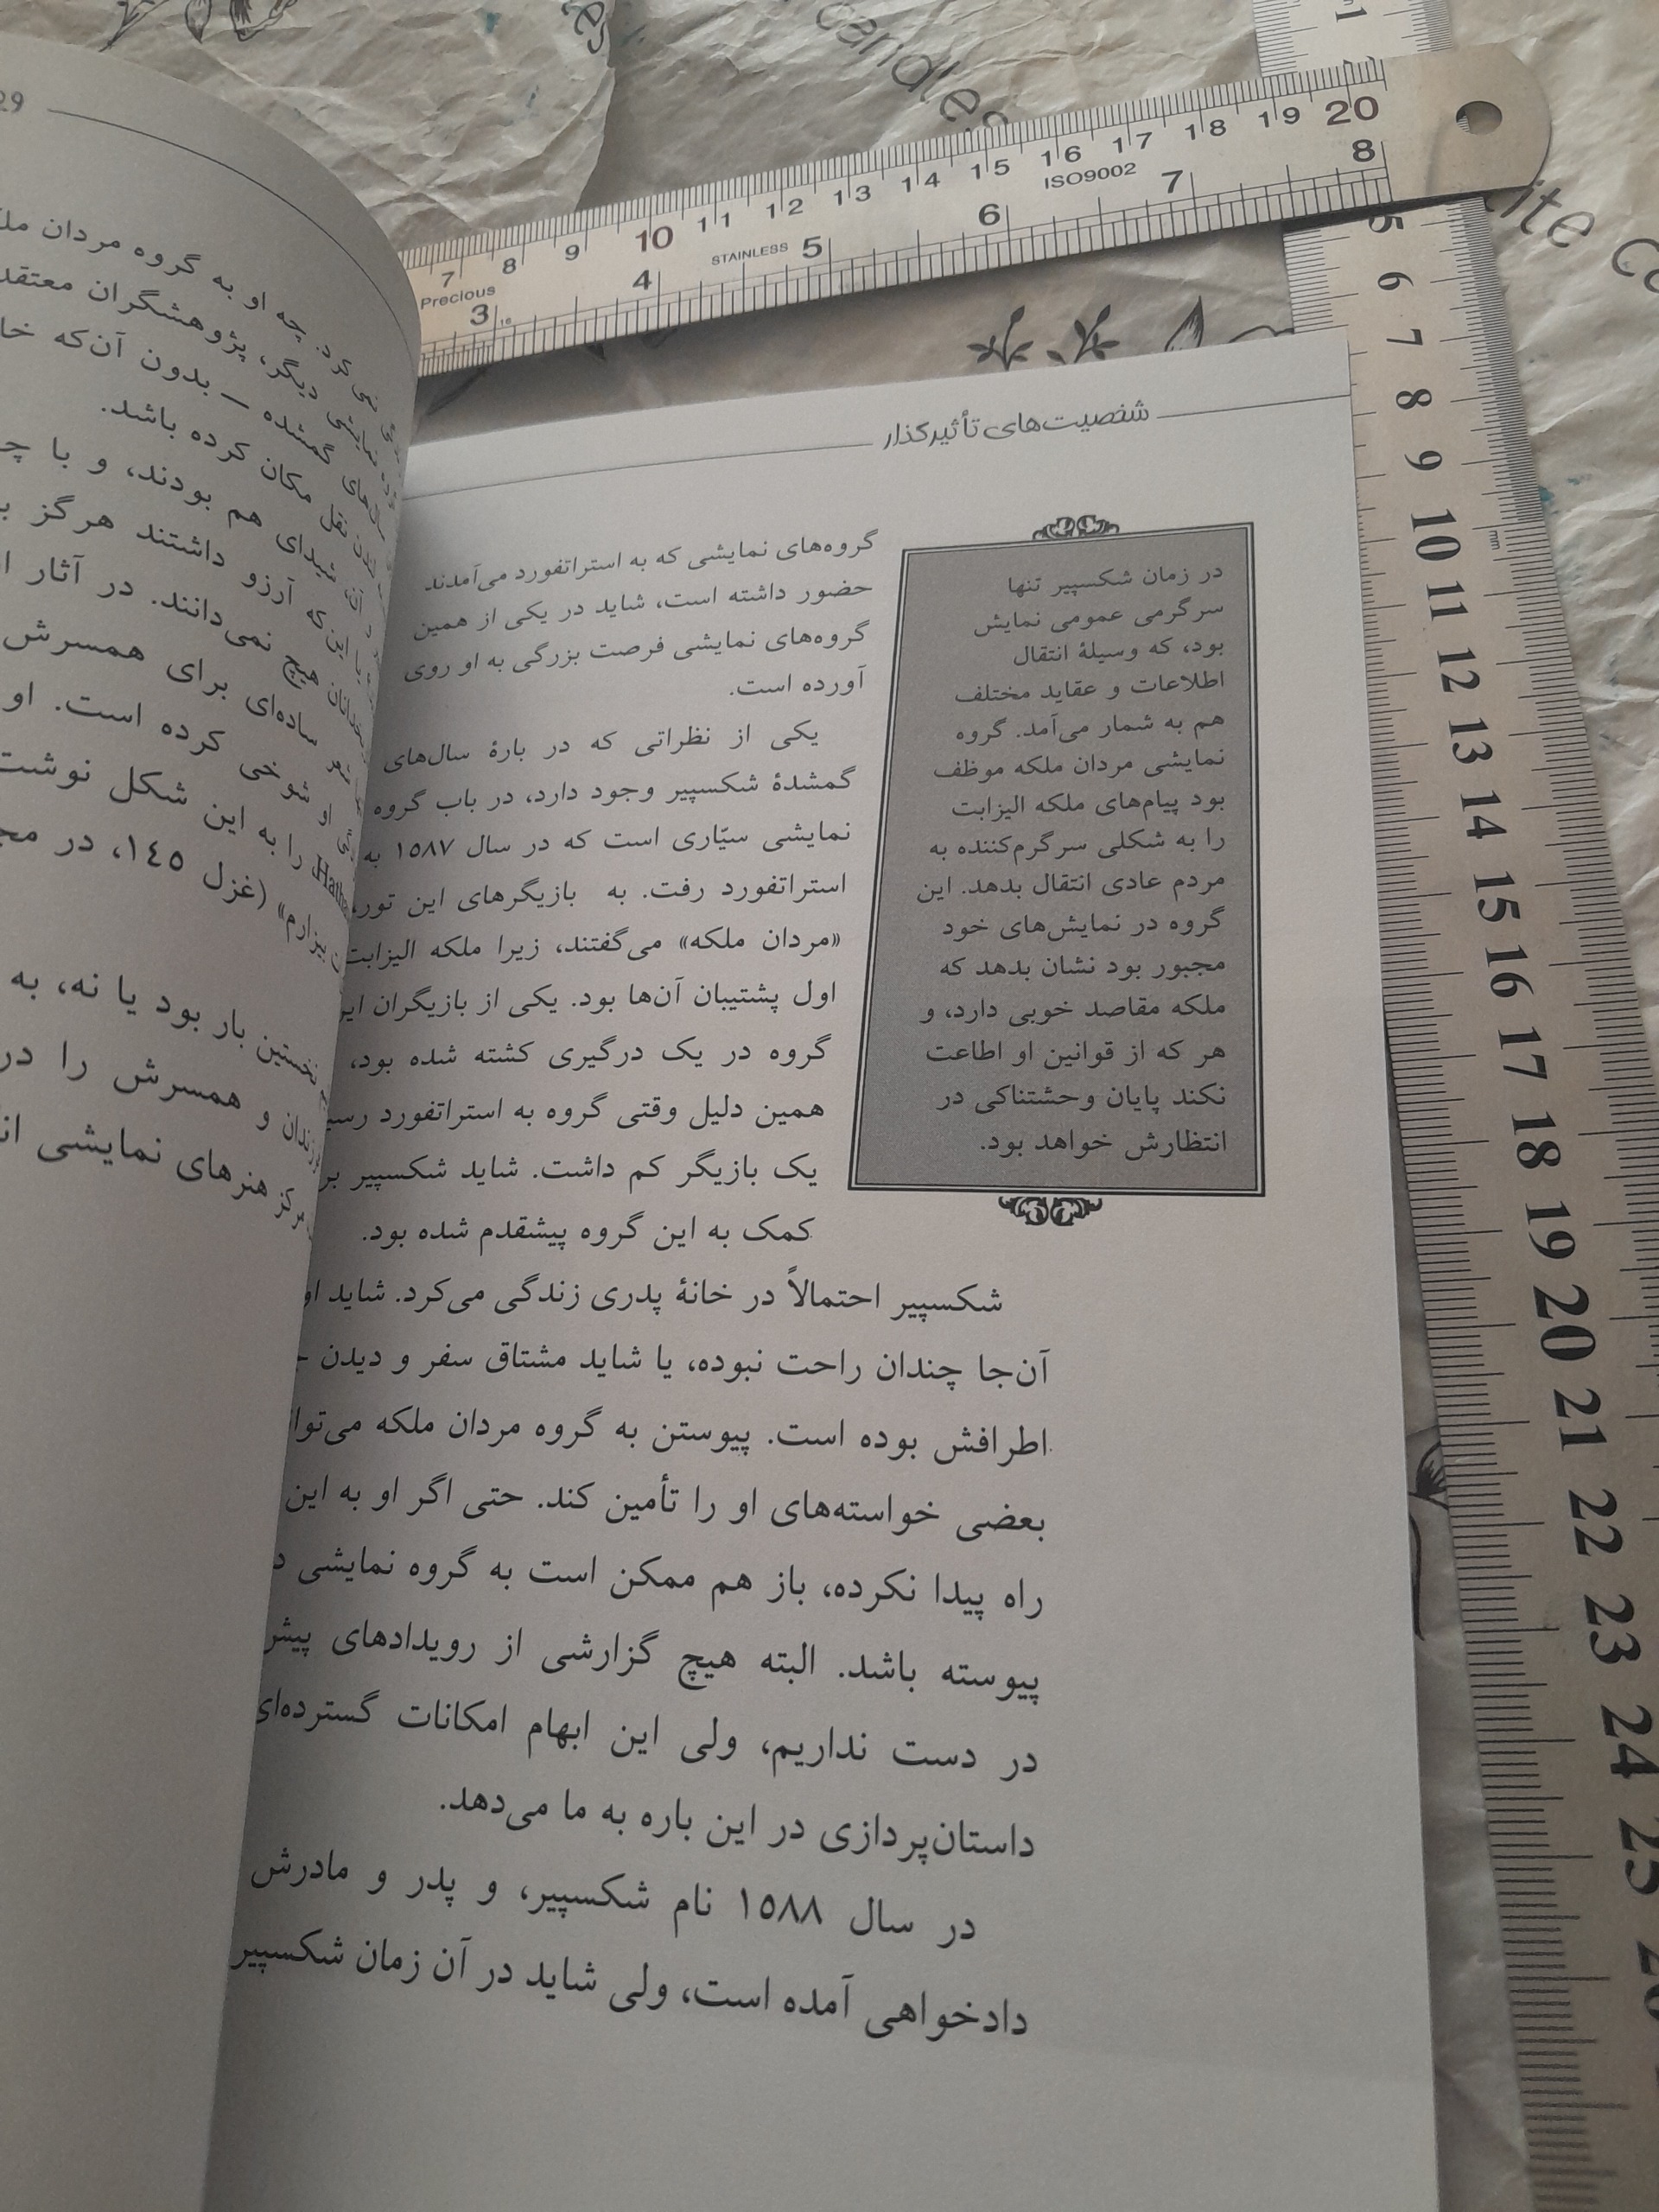 شخصیت‌های تأثیرگذار
در زمان شکسپیر تنها
سرگرمی عمومی نمایش
بود، که وسیلهٔ انتقال
اطلاعات و عقاید مختلف
هم به شمار می‌آمد. گروه
نمایشی مردان ملکه موظف
بود پیام‌های ملکه الیزابت
را به شکلی سرگرم‌کننده به
مردم عادی انتقال بدهد. این
گروه در نمایش‌های خود
مجبور بود نشان بدهد که
ملکه مقاصد خوبی دارد، و
هر که از قوانین او اطاعت
نکند پایان وحشتناکی در
انتظارش خواهد بود.
گروه‌های نمایشی که به استراتفورد می‌آمدند
حضور داشته است، شاید در یکی از همین
گروه‌های نمایشی فرصت بزرگی به او روی
آورده است.
یکی از نظراتی که در بارهٔ سال‌های
گمشدهٔ شکسپیر وجود دارد، در باب گروه
نمایشی سیّاری است که در سال ۱۵۸۷ به
استراتفورد رفت. به بازیگرهای این تور،
«مردان ملکه» می‌گفتند، زیرا ملکه الیزابت
اول پشتیبان آن‌ها بود. یکی از بازیگران
گروه در یک درگیری کشته شده بود،
همین دلیل وقتی گروه به استراتفورد
یک بازیگر کم داشت. شاید شکسپیر
کمک به این گروه پیشقدم شده بود.
شکسپیر احتمالاً در خانهٔ پدری زندگی می‌کرد. شاید او
آن‌جا چندان راحت نبوده، یا شاید مشتاق سفر و دیدن
اطرافش بوده است. پیوستن به گروه مردان ملکه
بعضی خواسته‌های او را تأمین کند. حتی اگر او به این
راه پیدا نکرده، باز هم ممکن است به گروه نمایشی
پیوسته باشد. البته هیچ گزارشی از رویدادهای
در دست نداریم، ولی این ابهام امکانات گسترده‌ای
داستان‌پردازی در این باره به ما می‌دهد.
در سال ۱۵۸۸ نام شکسپیر، و پدر و مادرش
دادخواهی آمده است، ولی شاید در آن زمان شکسپیر
29
چه او به گروه مردان
دیگر، پژوهشگران معتقد
گمشده — بدون آن‌که
نقل مکان کرده باشد.
شیدای هم بودند، و با
این‌که آرزو داشتند هرگز
هیچ نمی‌دانند. در آثار
ساده‌ای برای همسرش
او شوخی کرده است. او
را به این شکل
بیزارم» (غزل ۱۴۵، در
نخستین بار بود یا نه، به
و همسرش را در
مرکز هنرهای نمایشی
candles
Precious
STAINLESS
ISO9002
7 8 9 10 11 12 13 14 15 16 17 18 19 20
3 4 5 6 7 8
5 6 7 8 9 10 11 12 13 14 15 16 17 18 19 20 21 22 23 24 25
mm